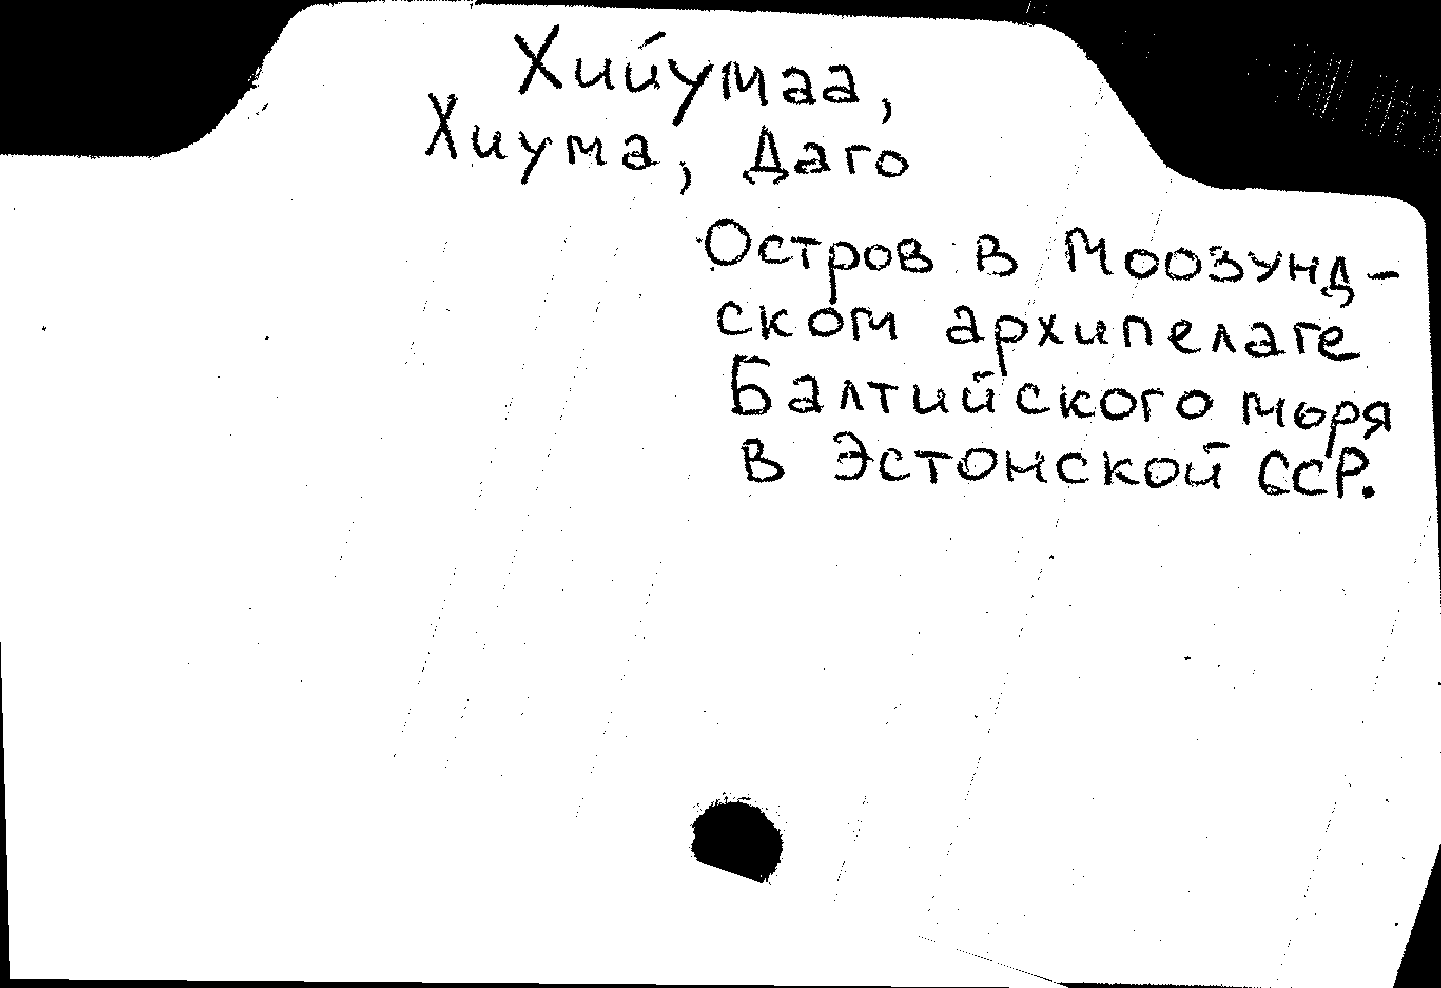 Хийумаа,
Хиума, Даго
Остров в Моозунд-
ском архипелаге
Балтийского моря
в Эстонской ССР.